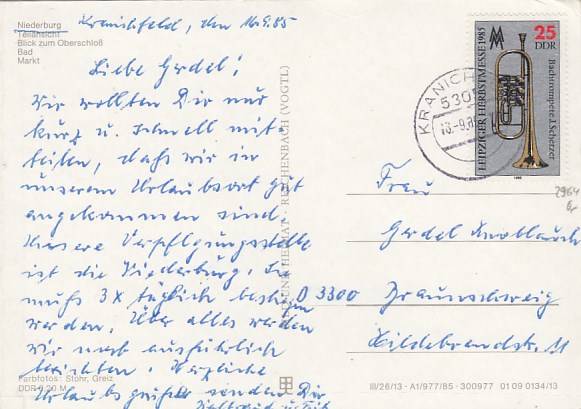 Niederburg
Teilansicht
Blick zum Oberschloß
Bad
Markt
Kranichfeld, den 16.9.85
Liebe Gerdel!
Wir wollten Dir nur
kurz u. schnell mit-
teilen, daß wir in
unserem Urlaubsort gut
angekommen sind.
Unsere Verpflegungsstelle
ist die Niederburg. Sie
muß 3x täglich bestiegen
werden. Über alles werden
wir noch ausführlich
berichten. Herzliche
Urlaubsgrüße senden Dir
u.
Farbfotos: Stöhr, Greiz
DDR 0,20 M
REICHENBACH (VOGTL)
KRANICH
530
-9.85
LEIPZIGER HERBSTMESSE 1985
25
DDR
Basstrompete J. Scherzer
1985
2964
Frau
Gerdel
D 3300 Braunschweig
Hildebrandstr. 11
III/26/13 · A1/977/85 · 300977 01 09 0134/13